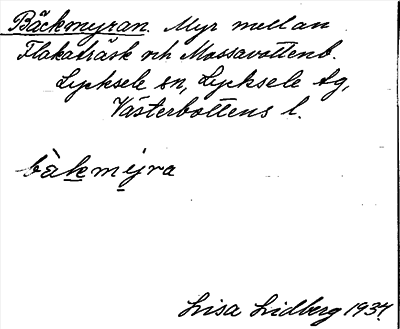 Bäckmyran. Myr mellan
Flakaträsk och Mossavattenb.
Lycksele sn, Lycksele tg,
Västerbottens l.
bàkmýra
Lisa Lidberg 1934.